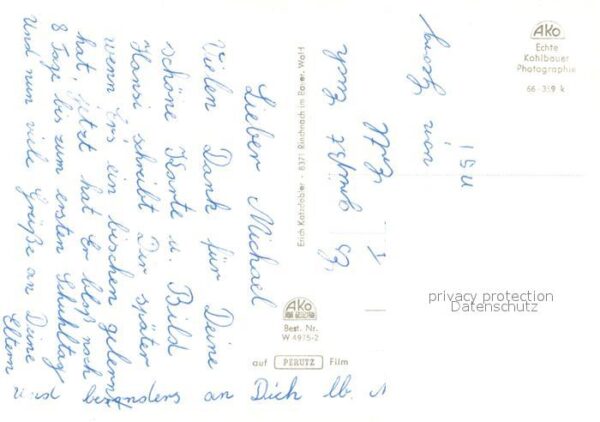 Lieber Michael
Vielen Dank für Deine
schöne Karte u. Bild
Hansi schreibt Dir später
wenn Er's ein bischen gelernt
hat, jetzt hat Er bloß noch
8 Tage bis zum ersten Schultag
Und nun viele Grüße an Deine
Eltern
und besonders an Dich lb. M
Es grüßt Euch
von Georg
AKO
Echte
Kohlbauer
Photographie
66-359 k
Erich Katzdobler - 8371 Rinchnach im Bayer. Wald
AKO
Best. Nr.
W 4975-2
auf PERUTZ Film
privacy protection
Datenschutz